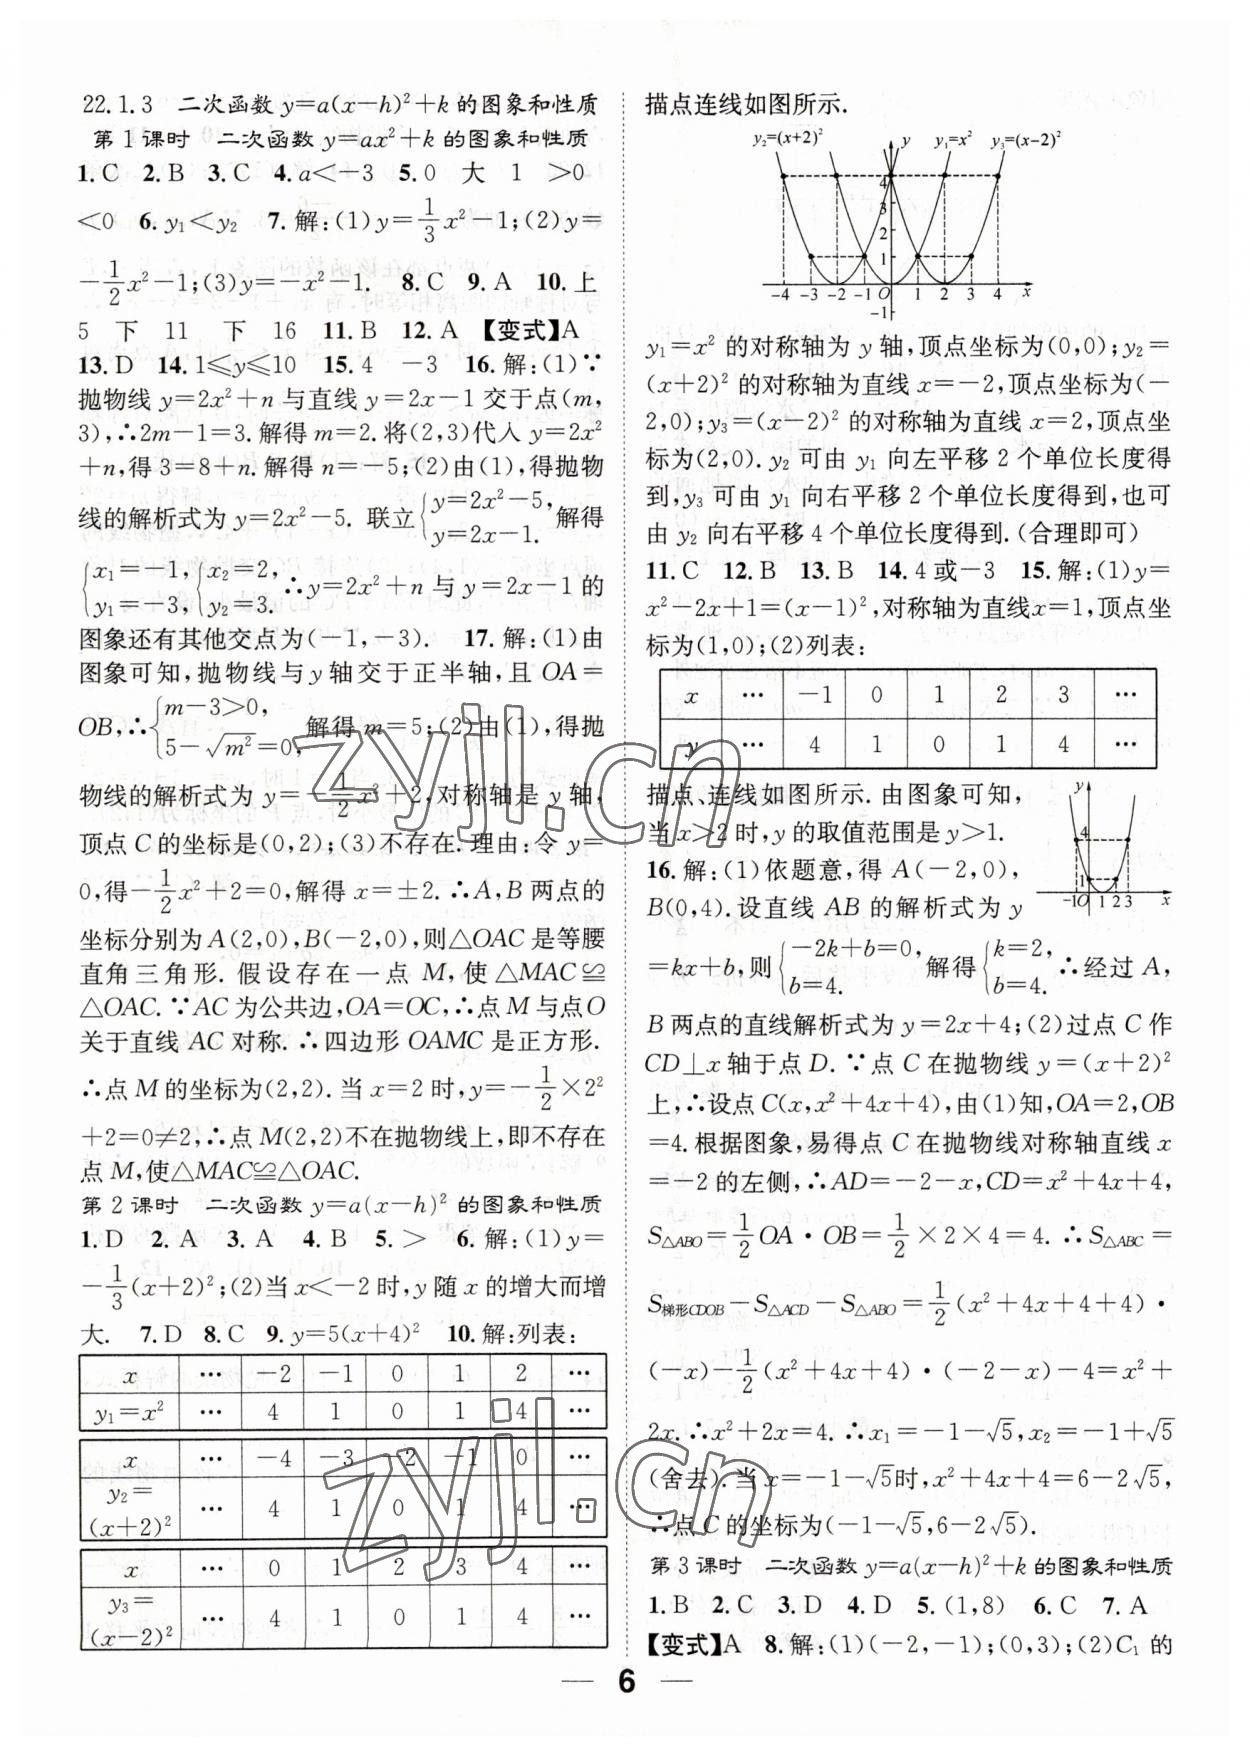 22.1.3 二次函数 y=a(x-h)²+k 的图象和性质
第1课时 二次函数 y=ax²+k 的图象和性质
1. C 2. B 3. C 4. a<-3 5. 0 大 1 >0
<0 6. y₁<y₂ 7. 解:(1)y=1/3x²-1;(2)y=
-1/2x²-1;(3)y=-x²-1. 8. C 9. A 10. 上
5 下 11 下 16 11. B 12. A 【变式】A
13. D 14. 1≤y≤10 15. 4 -3 16. 解:(1)∵
抛物线 y=2x²+n 与直线 y=2x-1 交于点(m,
3),∴2m-1=3. 解得 m=2. 将(2,3)代入 y=2x²
+n,得 3=8+n. 解得 n=-5;(2)由(1),得抛物
线的解析式为 y=2x²-5. 联立{y=2x²-5, y=2x-1. 解得
{x₁=-1, y₁=-3, {x₂=2, y₂=3. ∴y=2x²+n 与 y=2x-1 的
图象还有其他交点为(-1,-3). 17. 解:(1)由
图象可知,抛物线与 y 轴交于正半轴,且 OA=
OB,∴{m-3>0, 5-√m²=0, 解得 m=5;(2)由(1),得抛
物线的解析式为 y=-1/2x²+2,对称轴是 y 轴,
顶点 C 的坐标是(0,2);(3)不存在. 理由:令 y=
0,得-1/2x²+2=0,解得 x=±2. ∴A,B 两点的
坐标分别为 A(2,0),B(-2,0),则△OAC 是等腰
直角三角形. 假设存在一点 M,使△MAC≌
△OAC. ∵AC 为公共边,OA=OC,∴点 M 与点 O
关于直线 AC 对称. ∴四边形 OAMC 是正方形.
∴点 M 的坐标为(2,2). 当 x=2 时,y=-1/2×2²
+2=0≠2,∴点 M(2,2)不在抛物线上,即不存在
点 M,使△MAC≌△OAC.
第2课时 二次函数 y=a(x-h)² 的图象和性质
1. D 2. A 3. A 4. B 5. > 6. 解:(1)y=
-1/3(x+2)²;(2)当 x<-2 时,y 随 x 的增大而增
大. 7. D 8. C 9. y=5(x+4)² 10. 解:列表:
x … -2 -1 0 1 2 …
y₁=x² … 4 1 0 1 4 …
x … -4 -3 -2 -1 0 …
y₂=(x+2)² … 4 1 0 1 4 …
x … 0 1 2 3 4 …
y₃=(x-2)² … 4 1 0 1 4 …
描点连线如图所示.
y₂=(x+2)² y y₁=x² y₃=(x-2)²
4
2
1
-4 -3 -2 -1 O 1 2 3 4 x
-1
y₁=x² 的对称轴为 y 轴,顶点坐标为(0,0);y₂=
(x+2)² 的对称轴为直线 x=-2,顶点坐标为(-
2,0);y₃=(x-2)² 的对称轴为直线 x=2,顶点坐
标为(2,0). y₂ 可由 y₁ 向左平移 2 个单位长度得
到,y₃ 可由 y₁ 向右平移 2 个单位长度得到,也可
由 y₂ 向右平移 4 个单位长度得到.(合理即可)
11. C 12. B 13. B 14. 4 或-3 15. 解:(1)y=
x²-2x+1=(x-1)²,对称轴为直线x=1,顶点坐
标为(1,0);(2)列表:
x … -1 0 1 2 3 …
y … 4 1 0 1 4 …
描点、连线如图所示. 由图象可知,
当 x>2 时,y 的取值范围是 y>1.
y
4
1
-1 O 1 2 3 x
16. 解:(1)依题意,得 A(-2,0),
B(0,4). 设直线 AB 的解析式为 y
=kx+b,则{-2k+b=0, b=4. 解得{k=2, b=4. ∴经过 A,
B 两点的直线解析式为 y=2x+4;(2)过点 C 作
CD⊥x 轴于点 D. ∵点 C 在抛物线 y=(x+2)²
上,∴设点 C(x,x²+4x+4),由(1)知,OA=2,OB
=4. 根据图象,易得点 C 在抛物线对称轴直线 x=
-2 的左侧,∴AD=-2-x,CD=x²+4x+4,
S△ABO=1/2OA·OB=1/2×2×4=4. ∴S△ABC=
S梯形CDOB-S△ACD-S△ABO=1/2(x²+4x+4+4)·
(-x)-1/2(x²+4x+4)·(-2-x)-4=x²+
2x. ∴x²+2x=4. ∴x₁=-1-√5,x₂=-1+√5
(舍去). 当 x=-1-√5时,x²+4x+4=6-2√5,
∴点 C 的坐标为(-1-√5,6-2√5).
第3课时 二次函数 y=a(x-h)²+k 的图象和性质
1. B 2. C 3. D 4. D 5. (1,8) 6. C 7. A
【变式】A 8. 解:(1)(-2,-1);(0,3);(2)C₁ 的
— 6 —
zyjl.cn
zyjl.cn